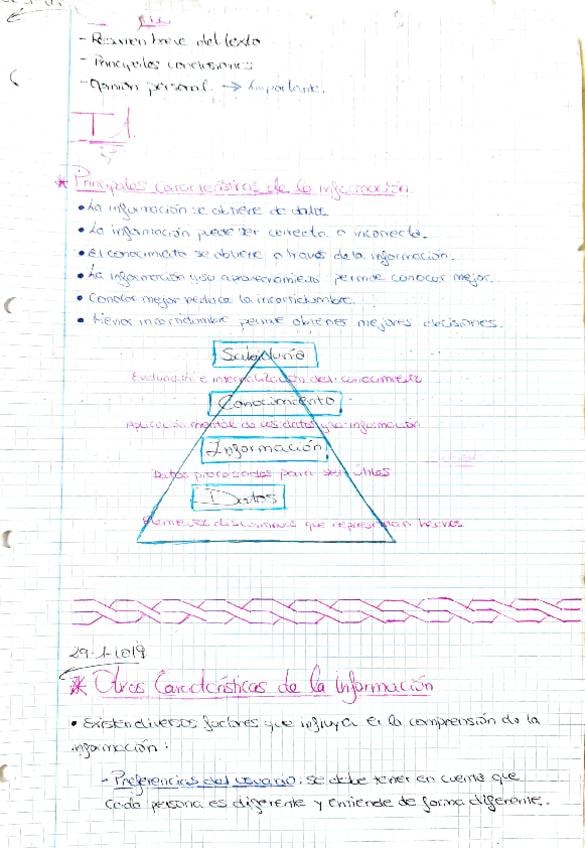 - Resumen breve del texto
- Principales conclusiones
- Opinión personal → Importante.
T1.
* Principales características de la información
• La información se obtiene de datos
• La información puede ser correcta o incorrecta.
• El conocimiento se obtiene a través de la información.
• La información y su aprovechamiento permite conocer mejor.
• Conocer mejor reduce la incertidumbre.
• Menor incertidumbre permite obtener mejores decisiones.
Sabiduría
Evaluación e internalización del conocimiento
Conocimiento
Aplicación mental de los datos y la información
Información
Datos procesados para ser útiles
Datos
Elementos discontinuos que representan hechos
29-1-2019
* Otras Características de la Información
• Existen diversos factores que influyen en la comprensión de la
información:
- Preferencias del usuario: se debe tener en cuenta que
cada persona es diferente y entiende de forma diferente.